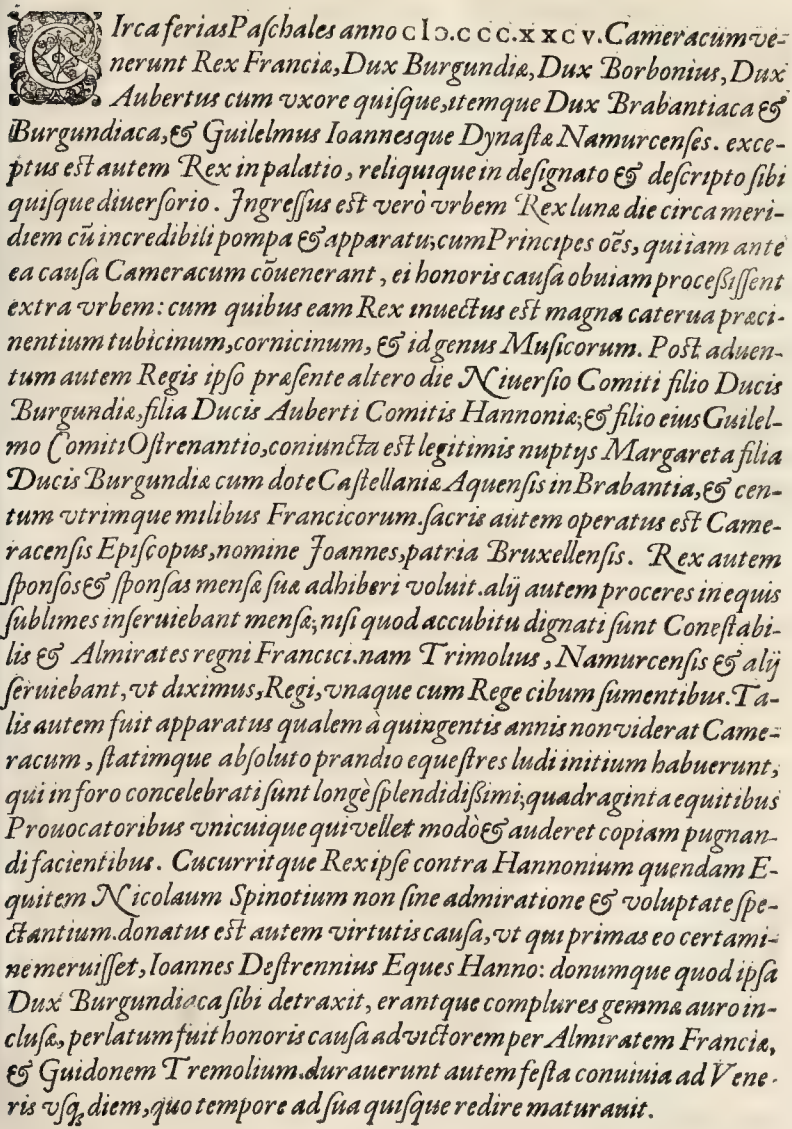 CIrca ferias Paſchales anno cIↄ.ccc.xxcv. Cameracum ve-
nerunt Rex Franciæ, Dux Burgundiæ, Dux Borbonius, Dux
Aubertus cum vxore quiſque, itemque Dux Brabantiaca &
Burgundiaca, & Guilelmus Ioannesque Dynaſtæ Namurcenſes. exce-
ptus eſt autem Rex in palatio, reliquique in deſignato & deſcripto ſibi
quiſque diuerſorio. Ingreſſus eſt verò vrbem Rex lunæ die circa meri-
diem cū incredibili pompa & apparatu; cum Principes oēs, qui iam ante
ea cauſa Cameracum cōuenerant, ei honoris cauſa obuiam proceßiſſent
extra vrbem: cum quibus eam Rex inuectus eſt magna caterua præci-
nentium tubicinum, cornicinum, & id genus Muſicorum. Poſt aduen-
tum autem Regis ipſo præſente altero die Niuerſio Comiti filio Ducis
Burgundiæ, filia Ducis Auberti Comitis Hannoniæ; & filio eius Guilel-
mo Comiti Oſtrenantio, coniuncta eſt legitimis nuptijs Margareta filia
Ducis Burgundiæ cum dote Caſtellaniæ Aquenſis in Brabantia, & cen-
tum vtrimque milibus Francicorum. ſacris autem operatus eſt Came-
racenſis Epiſcopus, nomine Joannes, patria Bruxellenſis. Rex autem
ſponſos & ſponſas menſæ ſuæ adhiberi voluit. alij autem proceres in equis
ſublimes inſeruiebant menſæ; niſi quod accubitu dignati ſunt Coneſtabi-
lis & Almirates regni Francici. nam Trimolius, Namurcenſis & alij
ſeruiebant, vt diximus, Regi, vnaque cum Rege cibum ſumentibus. Ta-
lis autem fuit apparatus qualem à quingentis annis non viderat Came-
racum, ſtatimque abſoluto prandio equeſtres ludi initium habuerunt,
qui in foro concelebrati ſunt longè ſplendidißimi; quadraginta equitibus
Prouocatoribus vnicuique qui vellet modò & auderet copiam pugnan-
di facientibus. Cucurritque Rex ipſe contra Hannonium quendam E-
quitem Nicolaum Spinotium non ſine admiratione & voluptate ſpe-
ctantium. donatus eſt autem virtutis cauſa, vt qui primas eo certami-
ne meruiſſet, Ioannes Deſtrennius Eques Hanno: donumque quod ipſa
Dux Burgundiaca ſibi detraxit, erantque complures gemmæ auro in-
cluſæ, perlatum fuit honoris cauſa ad victorem per Almiratem Franciæ,
& Guidonem Tremolium. durauerunt autem feſta conuiuia ad Vene-
ris vſq; diem, quo tempore ad ſua quiſque redire maturauit.